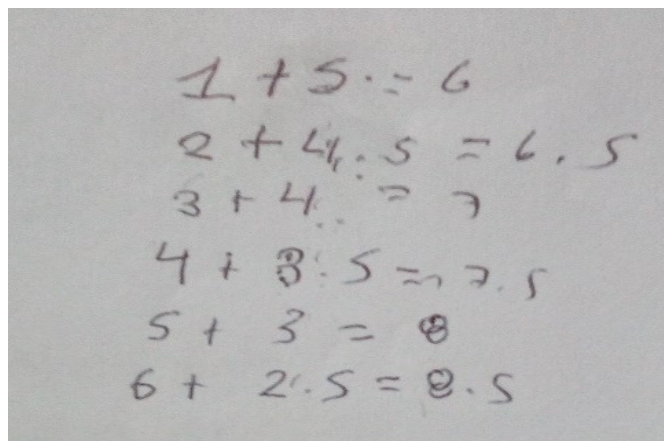 1 + 5 = 6
2 + 4.5 = 6.5
3 + 4 = 7
4 + 3.5 = 7.5
5 + 3 = 8
6 + 2.5 = 8.5